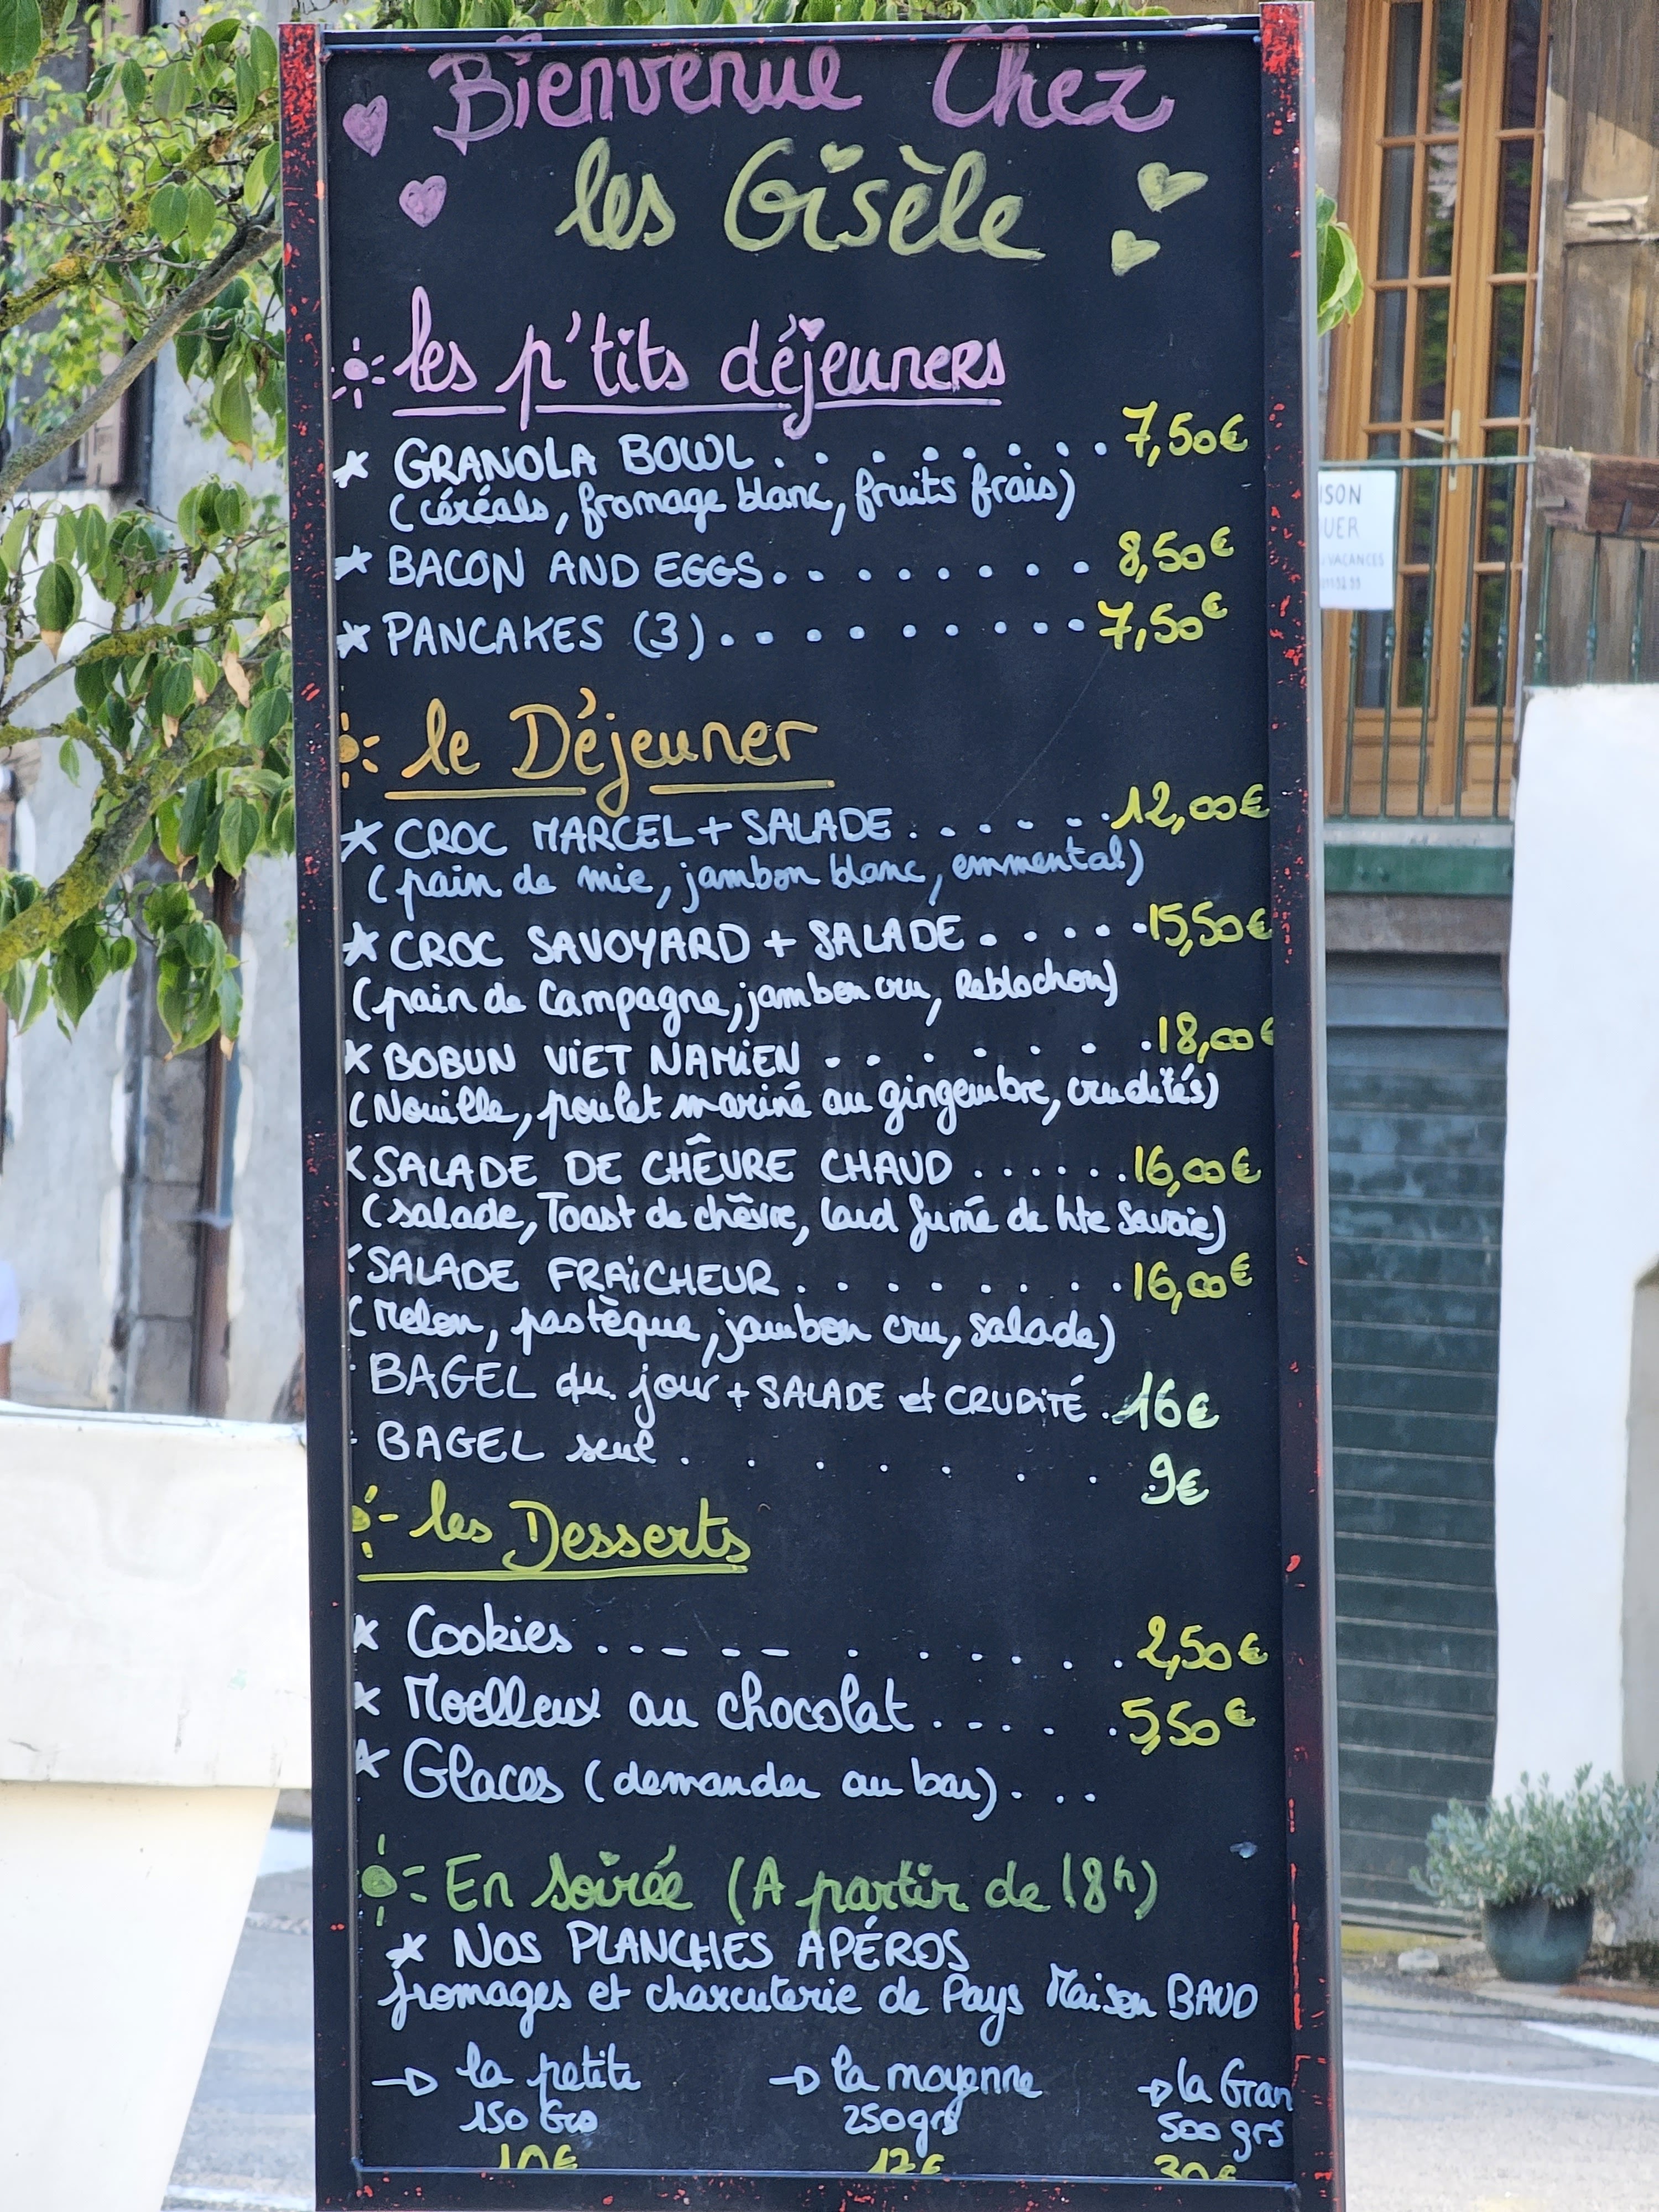 Bienvenue Chez
les Gisèle
les p'tits déjeuners
* GRANOLA BOWL . . . . . . . . 7,50€
(céréals, fromage blanc, fruits frais)
* BACON AND EGGS. . . . . . . . 8,50€
* PANCAKES (3) . . . . . . . . . 7,50€
le Déjeuner
* CROC MARCEL + SALADE . . . . . . 12,00€
(pain de mie, jambon blanc, emmental)
* CROC SAVOYARD + SALADE . . . . . 15,50€
(pain de Campagne, jambon cru, Reblochon)
* BOBUN ViET NAMiEN . . . . . . . 18,00€
(Nouille, poulet mariné au gingembre, crudités)
* SALADE DE CHÊVRE CHAUD . . . . . . 16,00€
(salade, Toast de chêvre, lard fumé de hte Savoie)
* SALADE FRAiCHEUR . . . . . . . . 16,00€
(Melon, pastèque, jambon cru, salade)
BAGEL du jour + SALADE et CRUDiTÉ . 16€
BAGEL seul . . . . . . . . 9€
les Desserts
* Cookies . . . _ _ _ . . . . . . 2,50€
* Moelleux au chocolat . . . . . 5,50€
* Glaces (demander au bar) . . .
En Soirée (A partir de 18h)
* NOS PLANCHES APÉROS
fromages et charcuterie de Pays Maison BAUD
la petite la moyenne la Gran
150 Grs 250grs 500 grs
10€ 30€
ISON
UER
VACANCES